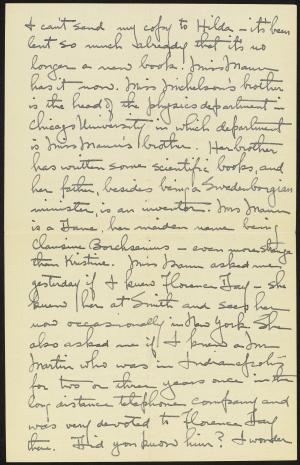 I can't send my copy to Hilda - it's been
lent so much already that it's no
longer a new book! Miss Mann
has it now. Miss Michelson's brother
is the head of the physics department -
Chicago University, in which department
is Miss Mann's brother. Her brother
has written some scientific books, and
her father, besides being a Swedenborgian
minister, is an inventor. Mrs Mann
is a Dane, her maiden name being
Clausine Borchsenius - even more strange
than Kristine. Miss Mann asked me
yesterday if I knew Florence Day - she
knew her at Smith and sees her
now occasionally in New York. She
also asked me if I knew a Mr
Martin who was in Indianapolis
for two or three years once in the
long distance telephone company and
was very devoted to Florence Day
then. Did you know him? I wonder